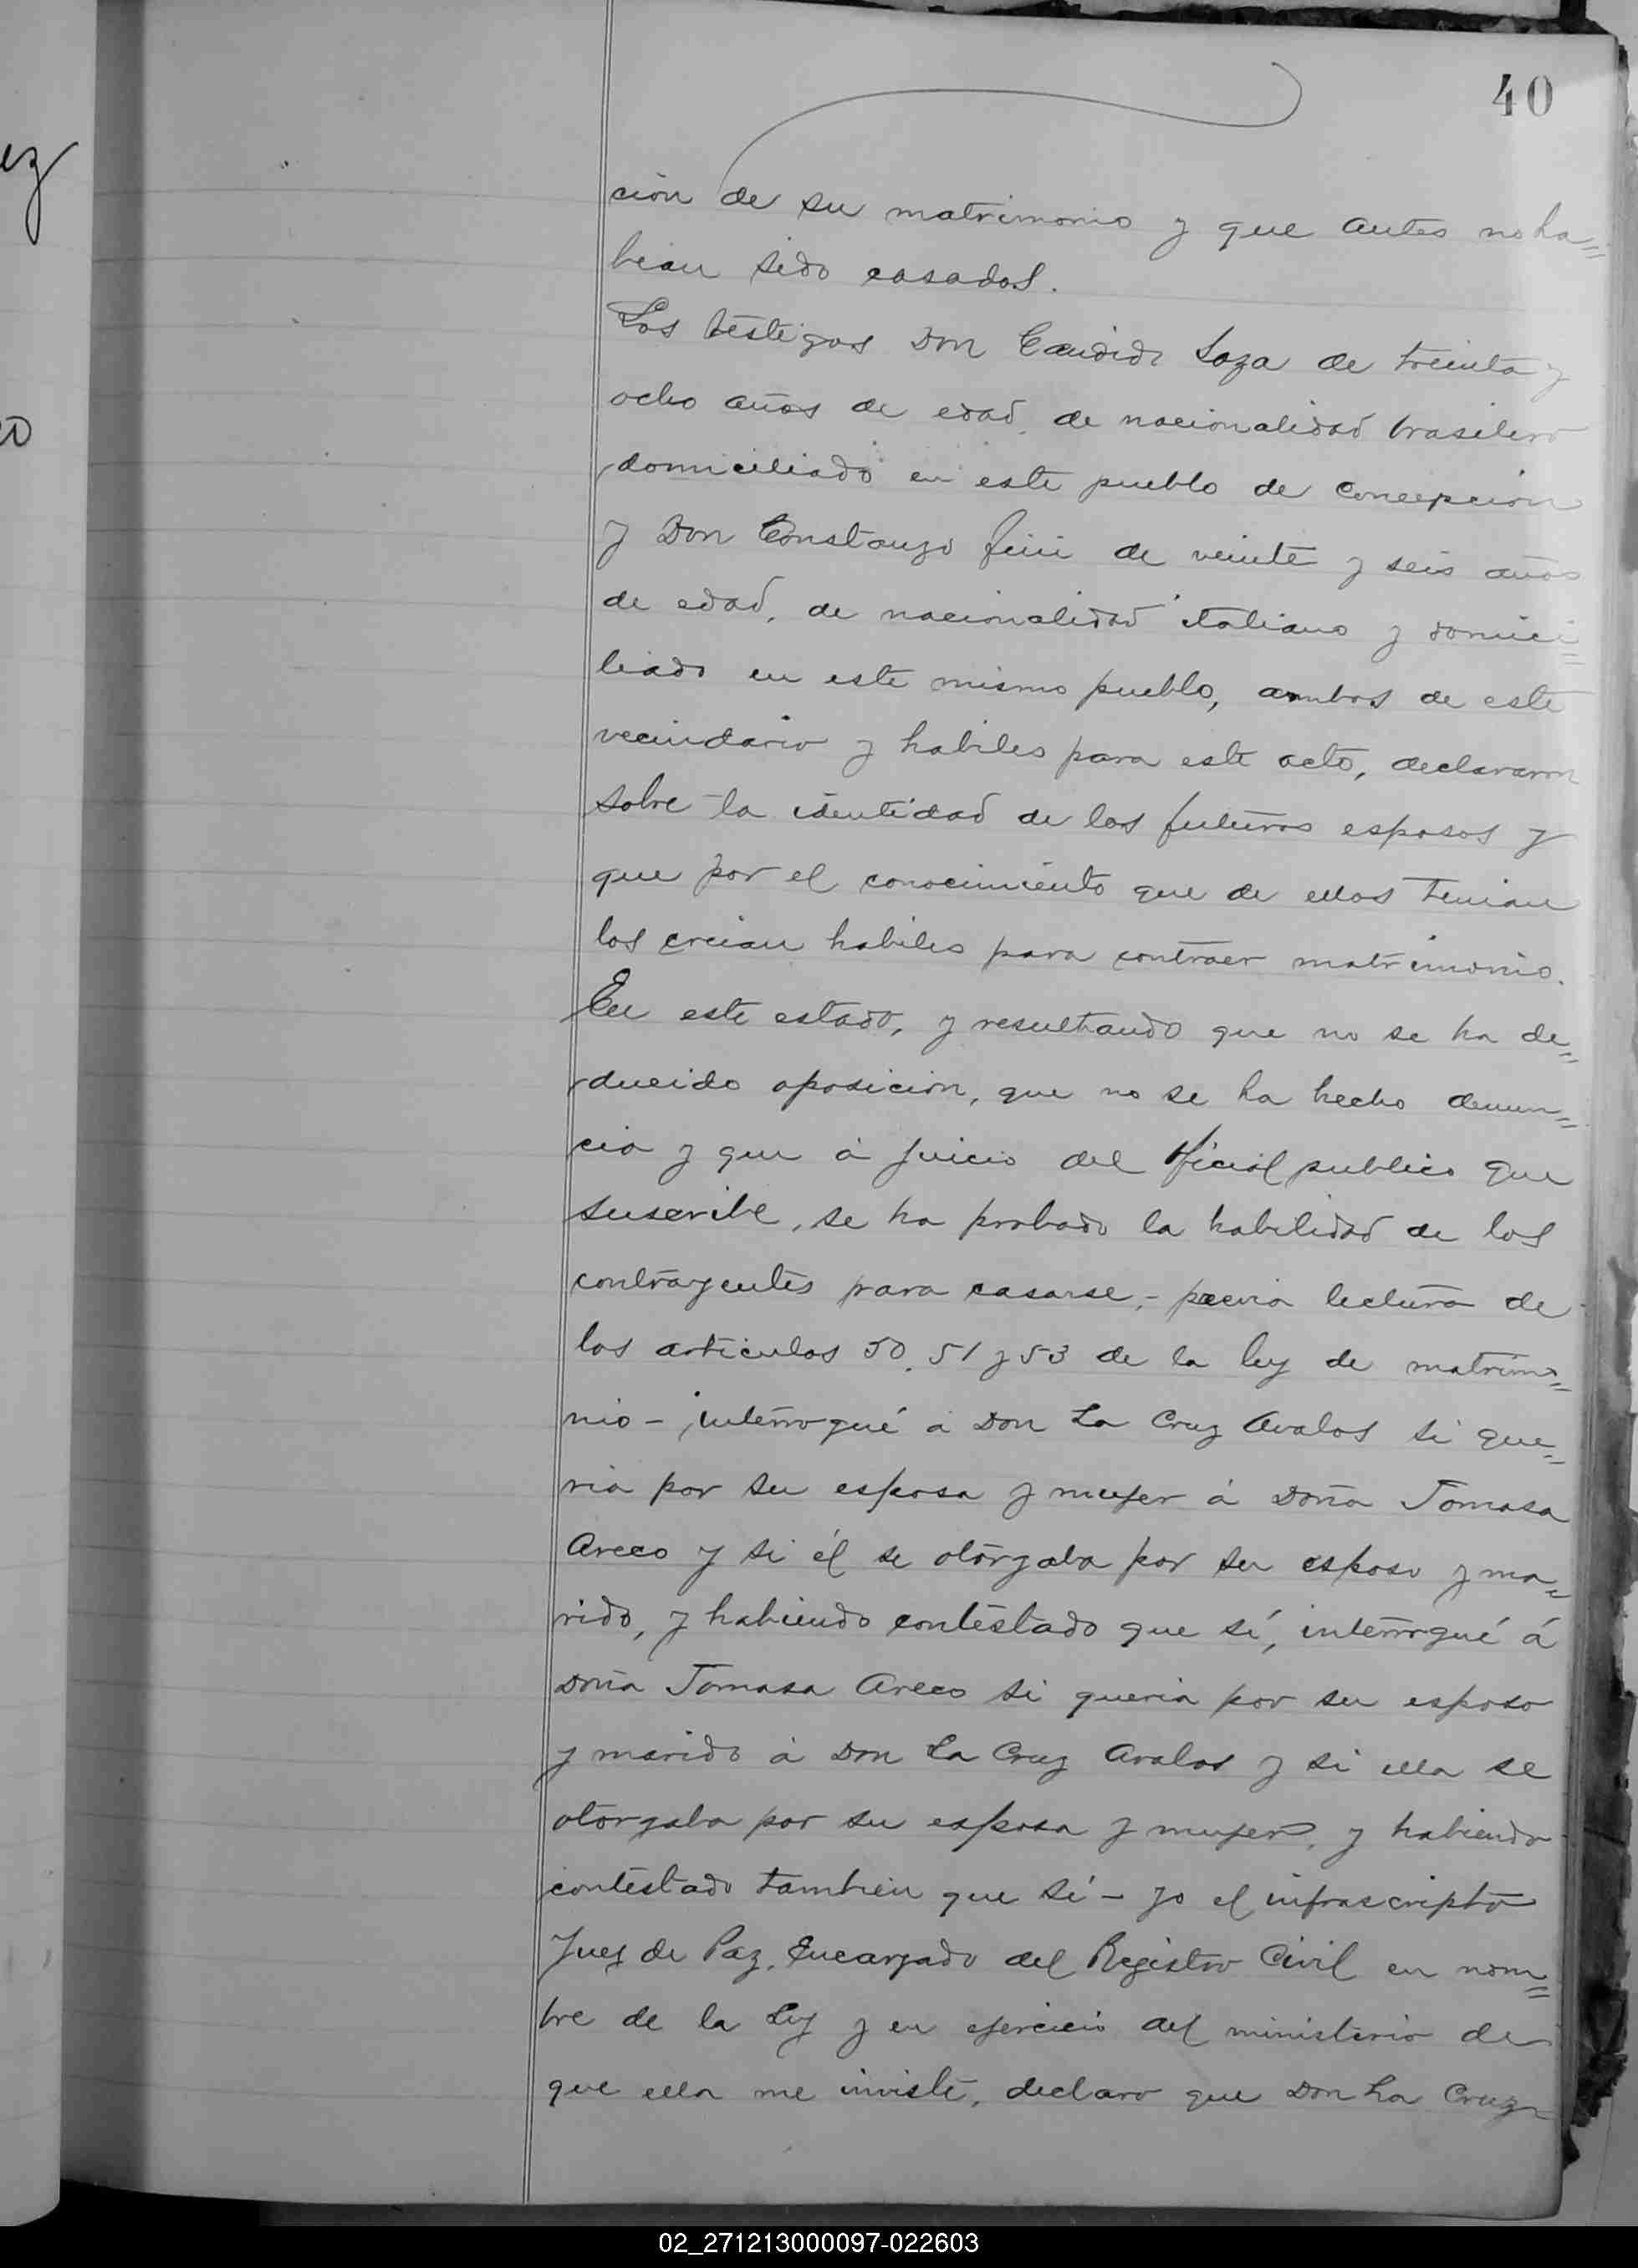 40
ez
co
ción de su matrimonio y que antes no ha=
bian sido casados.
Los testigos Don Candido Loza de treinta y
ocho años de edad, de nacionalidad brasilero
domiciliado en este pueblo de Concepcion
y Don Constanzo fini de veinte y seis años
de edad, de nacionalidad italiano y domici=
liado en este mismo pueblo, ambos de este
vecindario y habiles para este acto, declararon
sobre la identidad de los futuros esposos y
que por el conocimiento que de ellos tenian
los creian habiles para contraer matrimonio.
En este estado, y resultando que no se ha de=
ducido oposicion, que no se ha hecho denun=
cia y que á juicio del oficial publico que
suscribe, se ha probado la habilidad de los
contrayentes para casarse,- previa lectura de
los articulos 50, 51 y 53 de la ley de matrimo=
nio - interrogué á Don La Cruz Avalos si que=
ria por su esposa y mujer á Doña Tomasa
Areco y si él se otorgaba por su esposo y ma=
rido, y habiendo contestado que sí, interrogué á
Doña Tomasa Areco si queria por su esposo
y marido á Don La Cruz Avalos y si ella se
otorgaba por su esposa y mujer, y habiendo
contestado tambien que sí - yo el infrascripto
Juez de Paz, Encargado del Registro Civil en nom=
bre de la Ley y en ejercicio del ministerio de
que ella me inviste, declaro que Don La Cruz
02_271213000097-022603